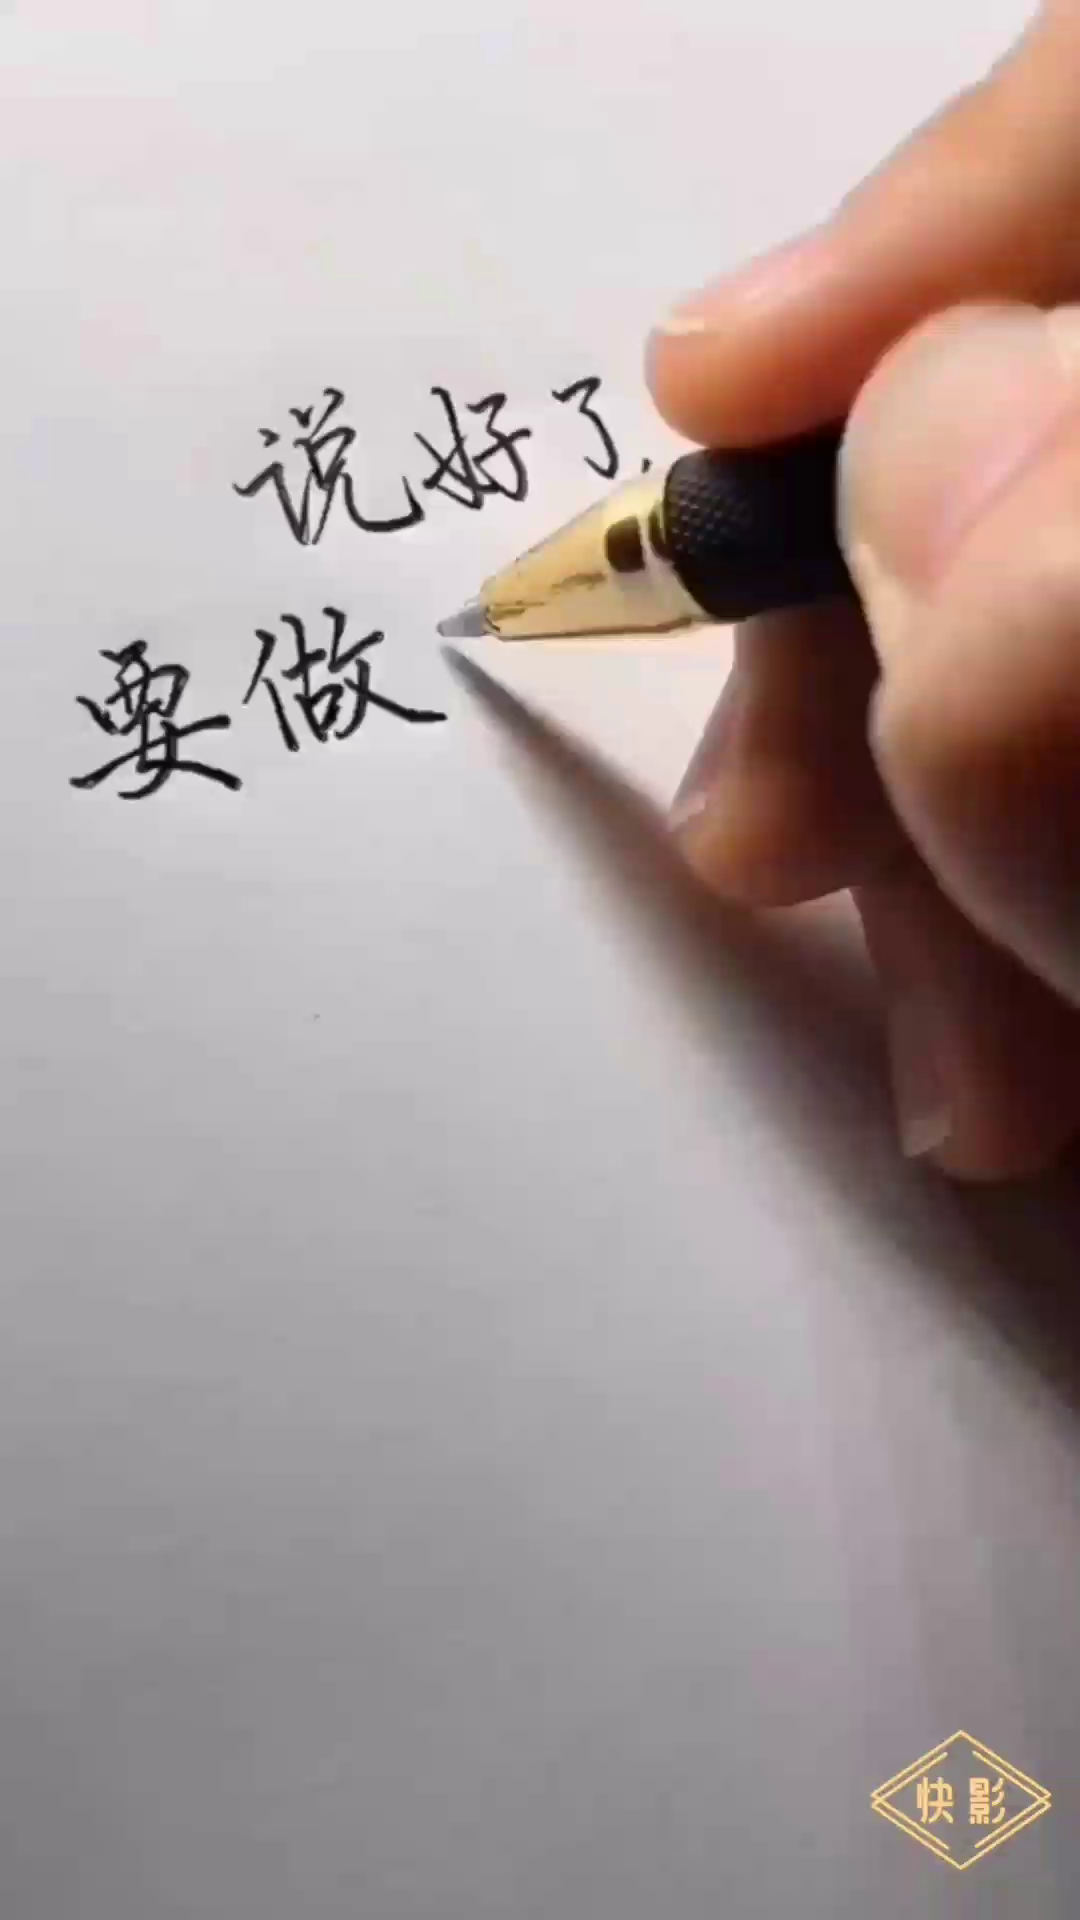 说好了,
要做
快影